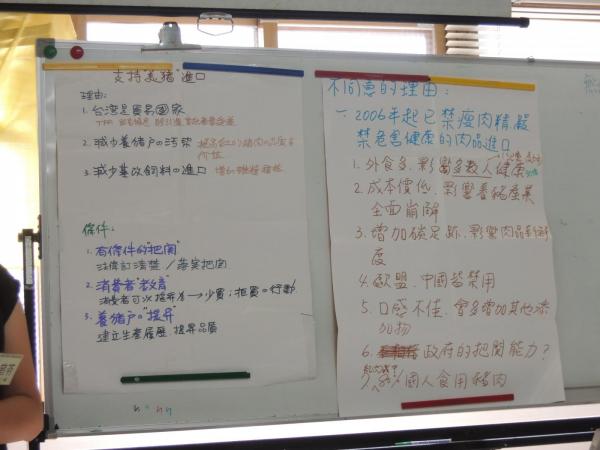 支持"美豬"進口
理由:
1. 台灣是貿易國家
2. 減少養豬戶の污染
3. 減少基改飼料の進口
條件:
1. 有條件的"把関"
2. 消費者"教育"
消費者可以提升为→少買;拒買の行動
3. 養豬戶の"提升"
建立生產履歷,提昇品質
不同意的理由:
一. 2006年起已禁瘦肉精,擬
禁危害健康的肉品進口
1. 外食多,影響多數人健康
2. 成本價低,影響養豬產業
全面崩解
3. 增加碳足跡,影響肉品新鮮
度
4. 歐盟、中國皆禁用
5. 口感不佳,會多增加其他添
加物
6. 政府的把関能力?
國人食用豬肉